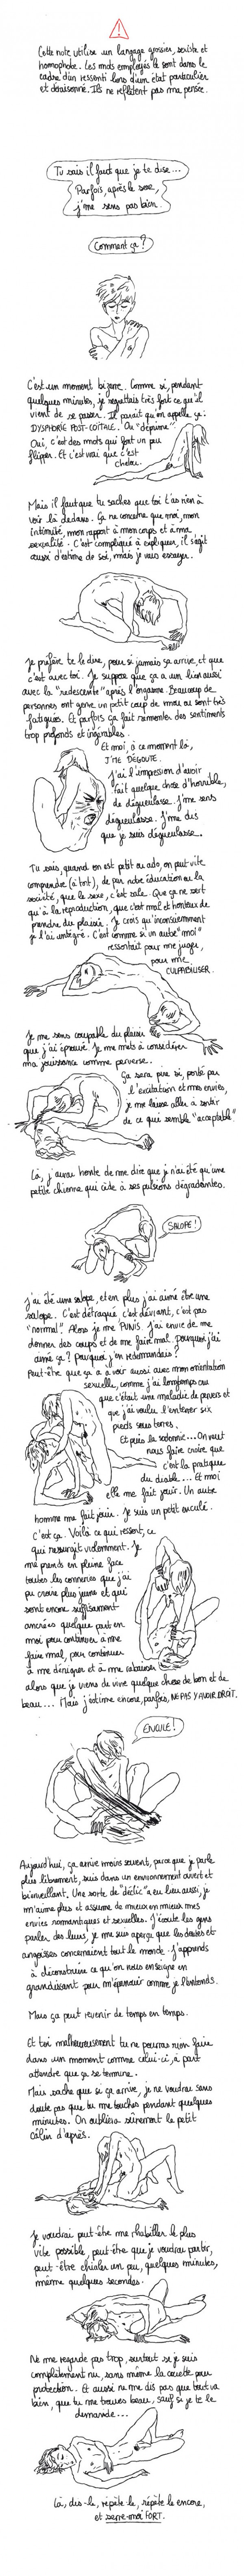 Cette note utilise un langage grossier, sexiste et
homophobe. Les mots employés le sont dans le
cadre d'un ressenti lors d'un état particulier
et déraisonné. Ils ne reflètent pas ma pensée.
Tu sais il faut que je te dise...
Parfois, après le sexe,
j'me sens pas bien.
Comment ça ?
C'est un moment bizarre. Comme si, pendant
quelques minutes, je regrettais très fort ce qu'il
vient de se passer. Il paraît qu'on appelle ça :
DYSPHORIE POST-COÏTALE. Ou "déprime".
Oui, c'est des mots qui font un peu
flipper. Et c'est vrai que c'est
chelou.
Mais il faut que tu saches que toi t'as rien à
voir là dedans. Ça ne concerne que moi, mon
intimité, mon rapport à mon corps et à ma
sexualité. C'est compliqué à expliquer, il s'agit
aussi d'estime de soi, mais je vais essayer.
Je préfère te le dire, pour si jamais ça arrive, et que
c'est avec toi. Je suppose que ça a un lien aussi
avec la "redescente" après l'orgasme. Beaucoup de
personnes ont genre un petit coup de mou ou sont très
fatiguées. Et parfois ça fait remonter des sentiments
trop profonds et ingérables.
Et moi, à ce moment là,
J'ME DÉGOUTE.
J'ai l'impression d'avoir
fait quelque chose d'horrible,
de dégueulasse. J'me sens
dégueulasse. J'me dis
que je suis dégueulasse.
Tu sais, quand on est petit ou ado, on peut vite
comprendre (à tort), de par notre éducation ou la
société, que le sexe, c'est sale. Que ça ne sert
qu'à la reproduction, que c'est mal et honteux de
prendre du plaisir. Je crois qu'inconsciemment
je l'ai intégré. C'est comme si un autre "moi"
ressortait pour me juger,
pour me
CULPABILISER.
Je me sens coupable du plaisir
que j'ai éprouvé. Je me mets à considérer
ma jouissance comme perverse.
Ça sera pire si, porté par
l'excitation et mes envies,
je me laisse aller à sortir
de ce qui semble "acceptable".
Là, j'aurai honte de me dire que je n'ai été qu'une
petite chienne qui cède à ses pulsions dégradantes.
SALOPE !
J'ai été une salope et en plus j'ai aimé être une
salope. C'est détraqué, c'est déviant, c'est pas
"normal". Alors je me PUNIS. J'ai envie de me
donner des coups et de me faire mal. Pourquoi j'ai
aimé ça ? Pourquoi j'en redemandais ?
Peut-être que ça a à voir aussi avec mon orientation
sexuelle, comme j'ai longtemps cru
que c'était une maladie de pervers et
que j'ai voulu l'enterrer six
pieds sous terre.
Et puis la sodomie... On veut
nous faire croire que
c'est la pratique
du diable... Et moi
elle me fait jouir. Un autre
homme me fait jouir. Je suis un petit enculé.
C'est ça. Voilà ce qui ressort, ce
qui resurgit violemment. Je
me prends en pleine face
toutes les conneries que j'ai
pu croire plus jeune et qui
sont encore suffisamment
ancrées quelque part en
moi pour continuer à me
faire mal, pour continuer
à me dénigrer et à me rabaisser
alors que je viens de vivre quelque chose de bon et de
beau... Mais j'estime encore, parfois, NE PAS Y AVOIR DROIT.
ENCULÉ !
Aujourd'hui, ça arrive moins souvent, parce que je parle
plus librement, suis dans un environnement ouvert et
bienveillant. Une sorte de "déclic" a eu lieu aussi, je
m'aime plus et assume de mieux en mieux mes
envies romantiques et sexuelles. J'écoute les gens
parler des leurs, je me suis aperçu que les doutes et
angoisses concernaient tout le monde. J'apprends
à déconstruire ce qu'on nous enseigne en
grandissant pour m'épanouir comme je l'entends.
Mais ça peut revenir de temps en temps.
Et toi malheureusement tu ne pourras rien faire
dans un moment comme celui-ci, à part
attendre que ça se termine.
Mais sache que si ça arrive, je ne voudrai sans
doute pas que tu me touches pendant quelques
minutes. On oubliera sûrement le petit
câlin d'après.
Je voudrai peut-être me rhabiller le plus
vite possible, peut-être que je voudrai partir,
peut-être chialer un peu, quelques minutes,
même quelques secondes.
Ne me regarde pas trop, surtout si je suis
complètement nu, sans même la couette pour
protection. Et aussi ne me dis pas que tout va
bien, que tu me trouves beau, sauf si je te le
demande...
Là, dis-le, répète-le, répète-le encore,
et serre-moi FORT.